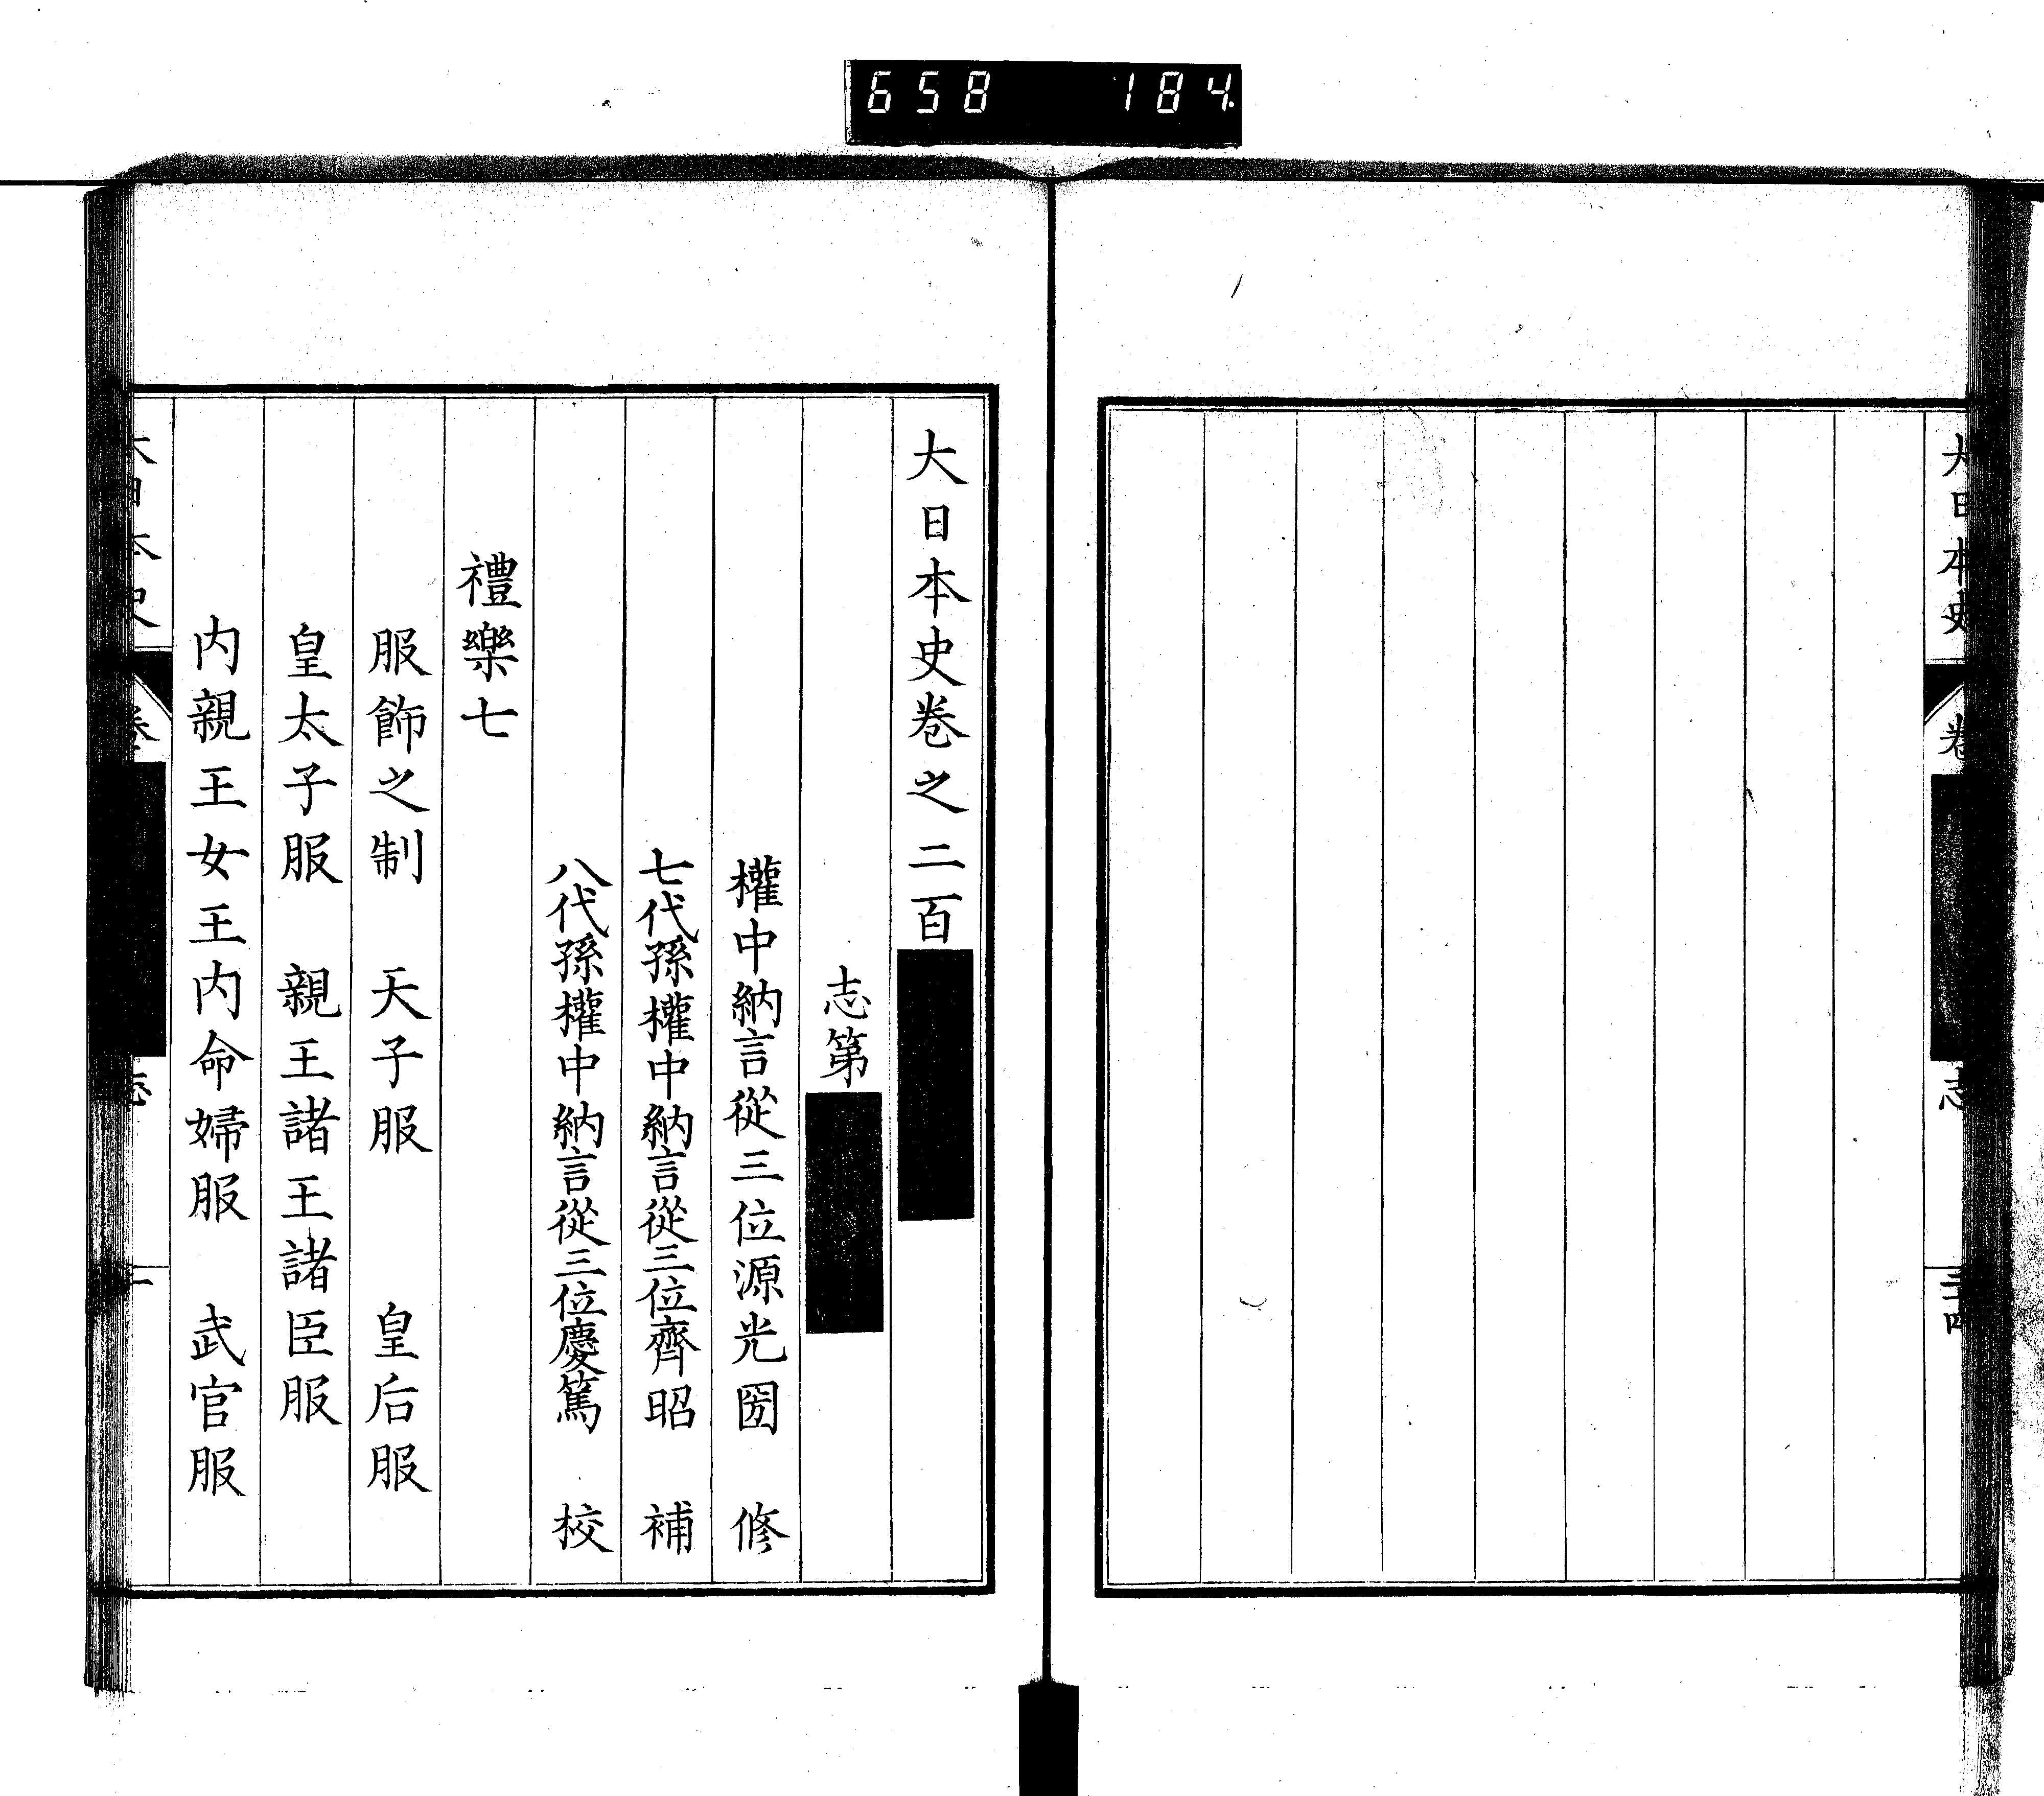 658 184
大日本史
卷
志
大日本史卷之二百
志第
權中納言從三位源光圀 修
七代孫權中納言從三位齊昭 補
八代孫權中納言從三位慶篤 校
禮樂七
服飾之制 天子服 皇后服
皇太子服 親王諸王諸臣服
内親王女王内命婦服 武官服
大日本史
卷
志